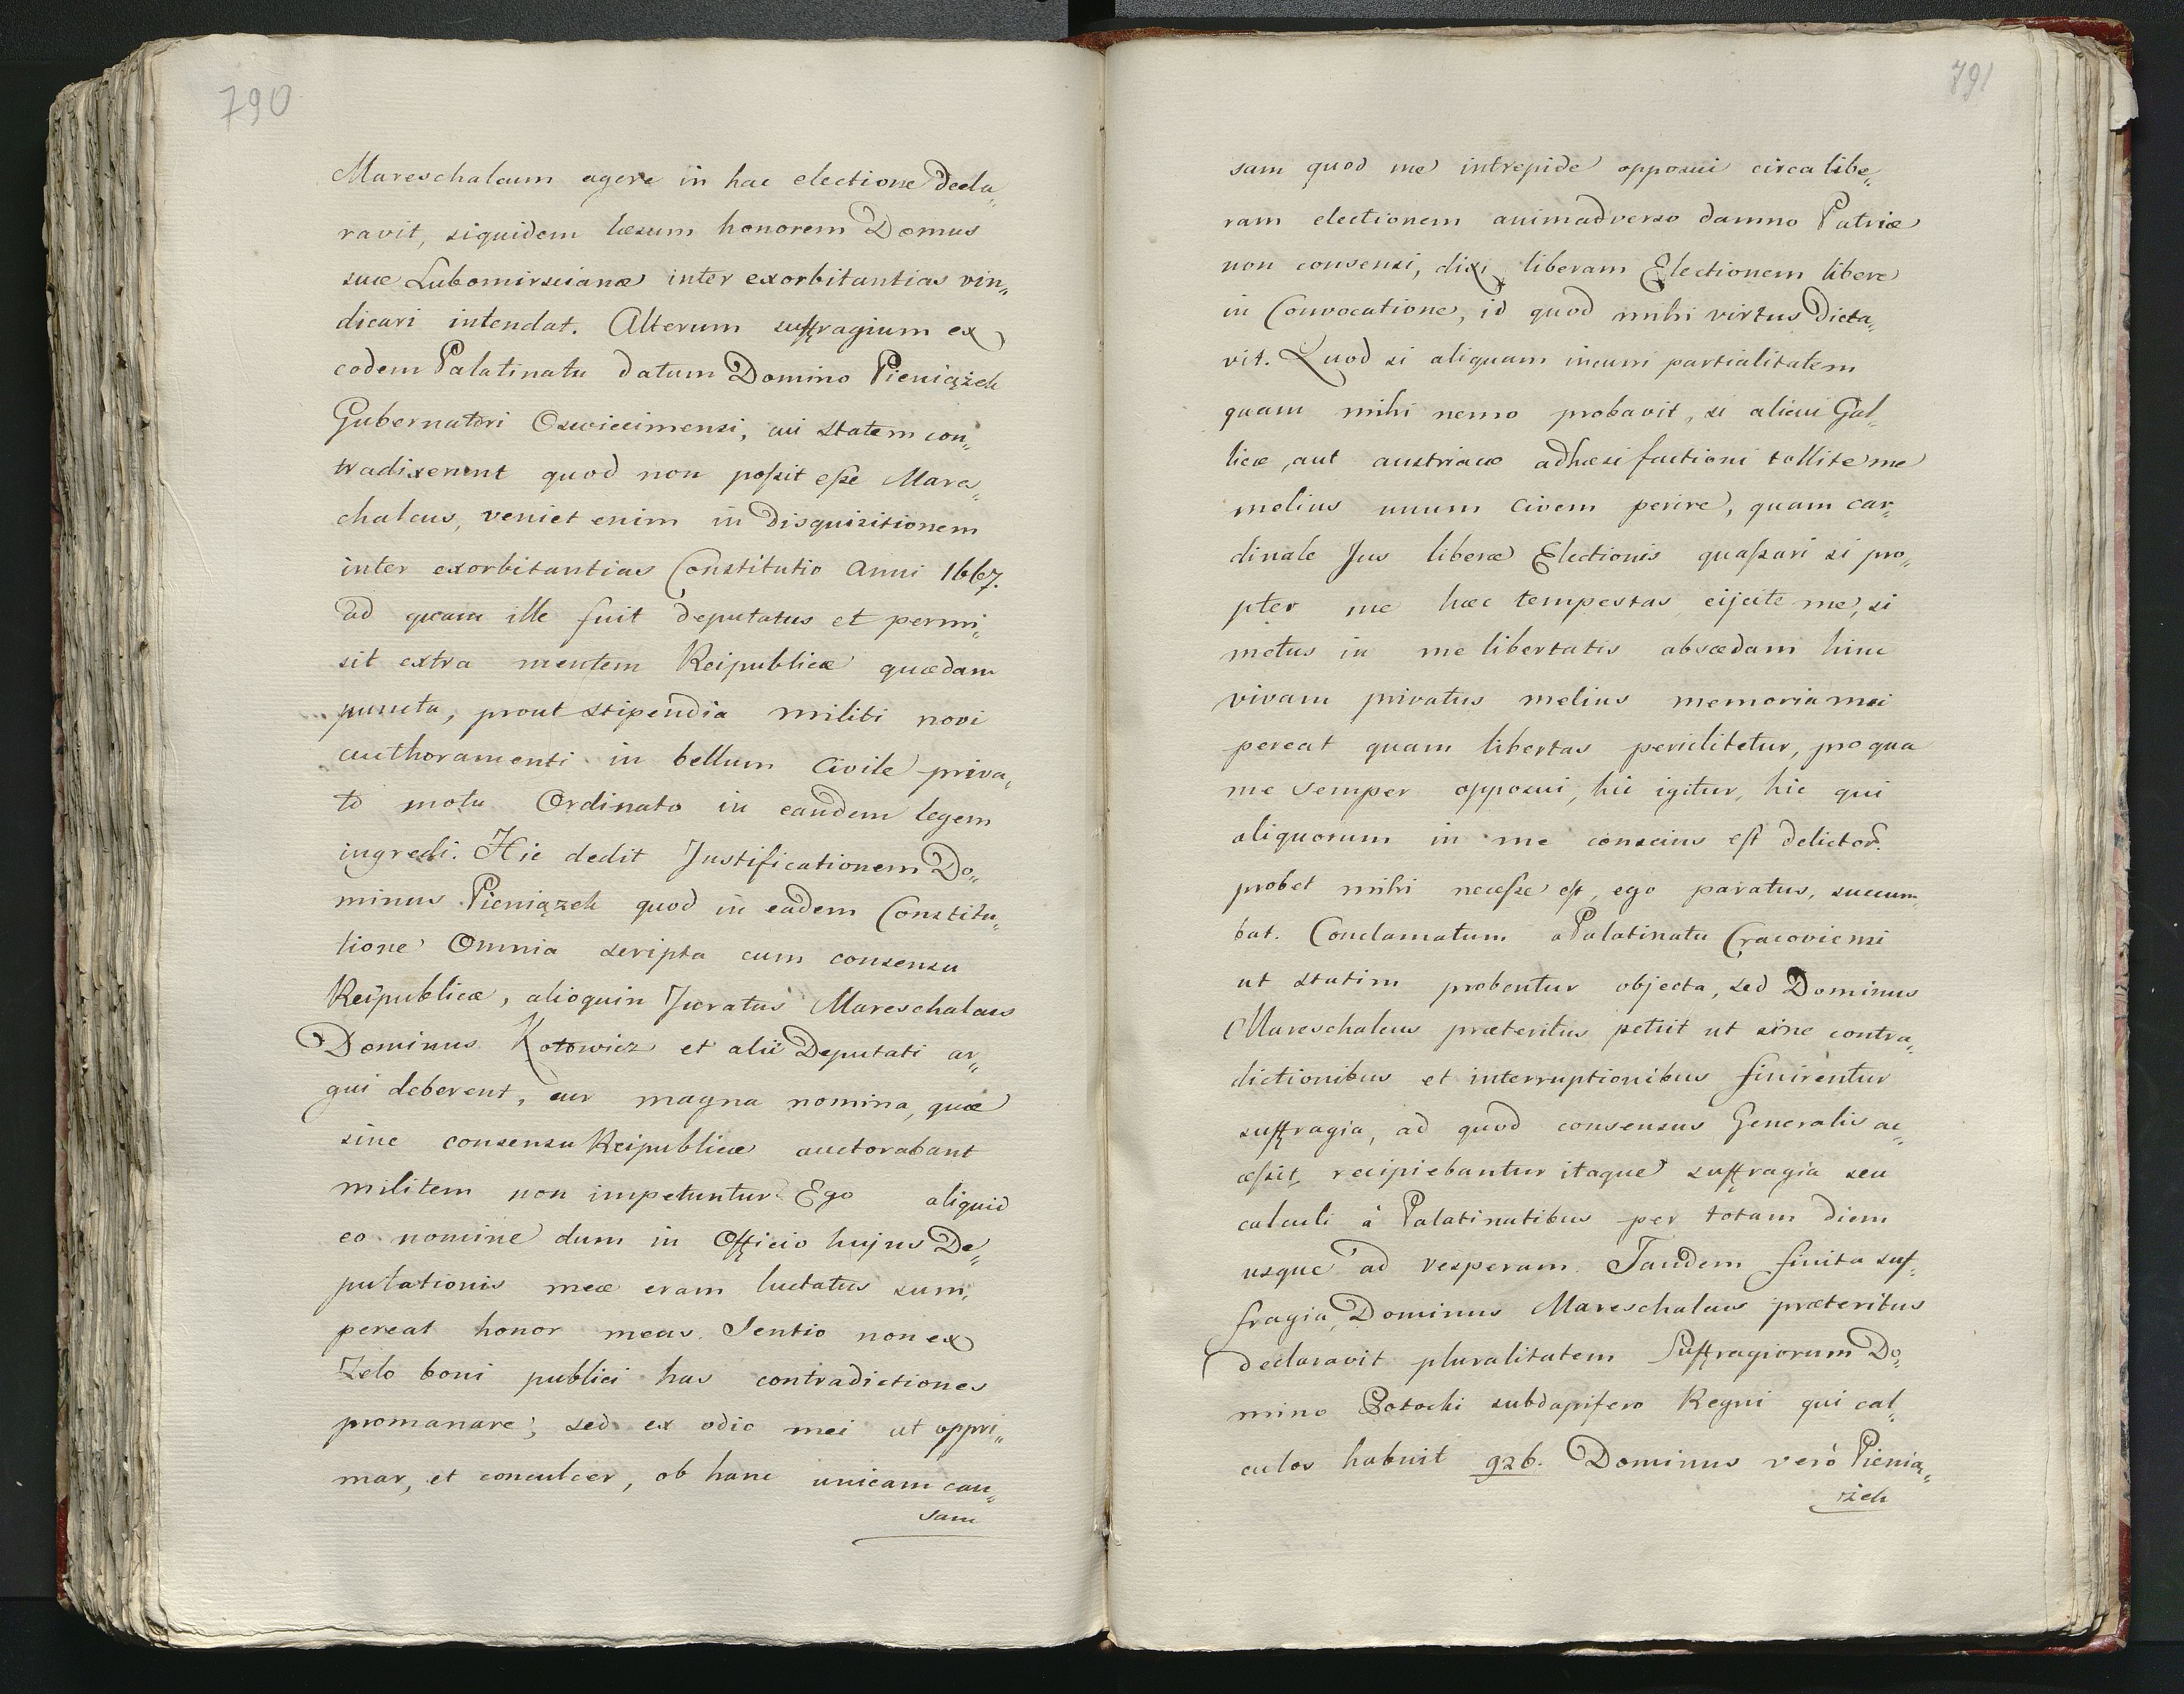 790
Mareschalcum agere in hac electione decla„
ravit, siquidem læsum honorem Domus
suæ Lubomirscianæ inter exorbitantias vin„
dicari intendat. Alterum suffragium ex
eodem Palatinatu datum Domino Pieniążek
Gubernatori Oswiecimensi, cui statem con„
tradixerunt quod non possit esse Mares„
chalcus, veniet enim in Disquisitionem
inter exorbitantias Constitutio Anni 1667.
ad quam ille fuit deputatus et permi„
sit extra mentem Reipublicæ quædam
puncta, prout stipendia militi novi
authoramenti in bellum Civile priva„
to motu Ordinato in eandem legem
ingredi. Hic dedit Justificationem Do„
minus Pieniązek quod in eadem Constitu„
tione Omnia scripta cum consensu
Reipublicæ, alioquin Juratus Mareschalcus
Dominus Kotowicz et alii Deputati ar„
gui deberent, cur magna nomina, quæ
sine consensu Reipublicæ auctorabant
militem non impetuntur? Ego aliquid
eo nomine dum in Officio hujus De„
putationis meæ eram luctatus sum,
pereat honor meus. Sentio non ex
Zelo boni publici has contradictiones
promanare; sed ex odio mei ut oppri„
mar, et conculcer, ob hanc unicam cau„
sam
791
sam quod me intrepide opposui circa libe„
ram electionem animadverso damno Patriæ
non consensi, dixi liberam Electionem libere
in Convocatione, id quod mihi virtus dicta„
vit. Quod si aliquam incurri partialitatem
quam mihi nemo probavit, si alicui Gal„
licæ aut austriacæ adhæsi factioni tollite me
melius unum Civem perire, quam car„
dinale Jus liberæ Electionis quassari si pro„
pter me hæc tempestas ejicite me, si
metus in me libertatis abscedam hinc
vivam privatus melius memoria mei
pereat quam libertas periclitetur, pro qua
me semper opposui, hic igitur, hic qui
aliquorum in me conscius est delictor.
probet mihi necesse est, ego paratus, succum„
bat. Conclamatum a Palatinatu Cracoviensi
ut statim probentur objecta, sed Dominus
Mareschalcus præteritus petiit ut sine contra„
dictionibus et interruptionibus finirentur
suffragia, ad quod consensus Generalis ac„
cessit, recipiebantur itaque suffragia seu
calculi à Palatinatibus per totam diem
usque ad vesperam. Tandem finita suf„
fragia, Dominus Mareschalcus præteritus
declaravit pluralitatem Suffragiorum Do„
mino Potocki subdapifero Regni qui cal„
culos habuit 926. Dominus verò Pienia„
zek